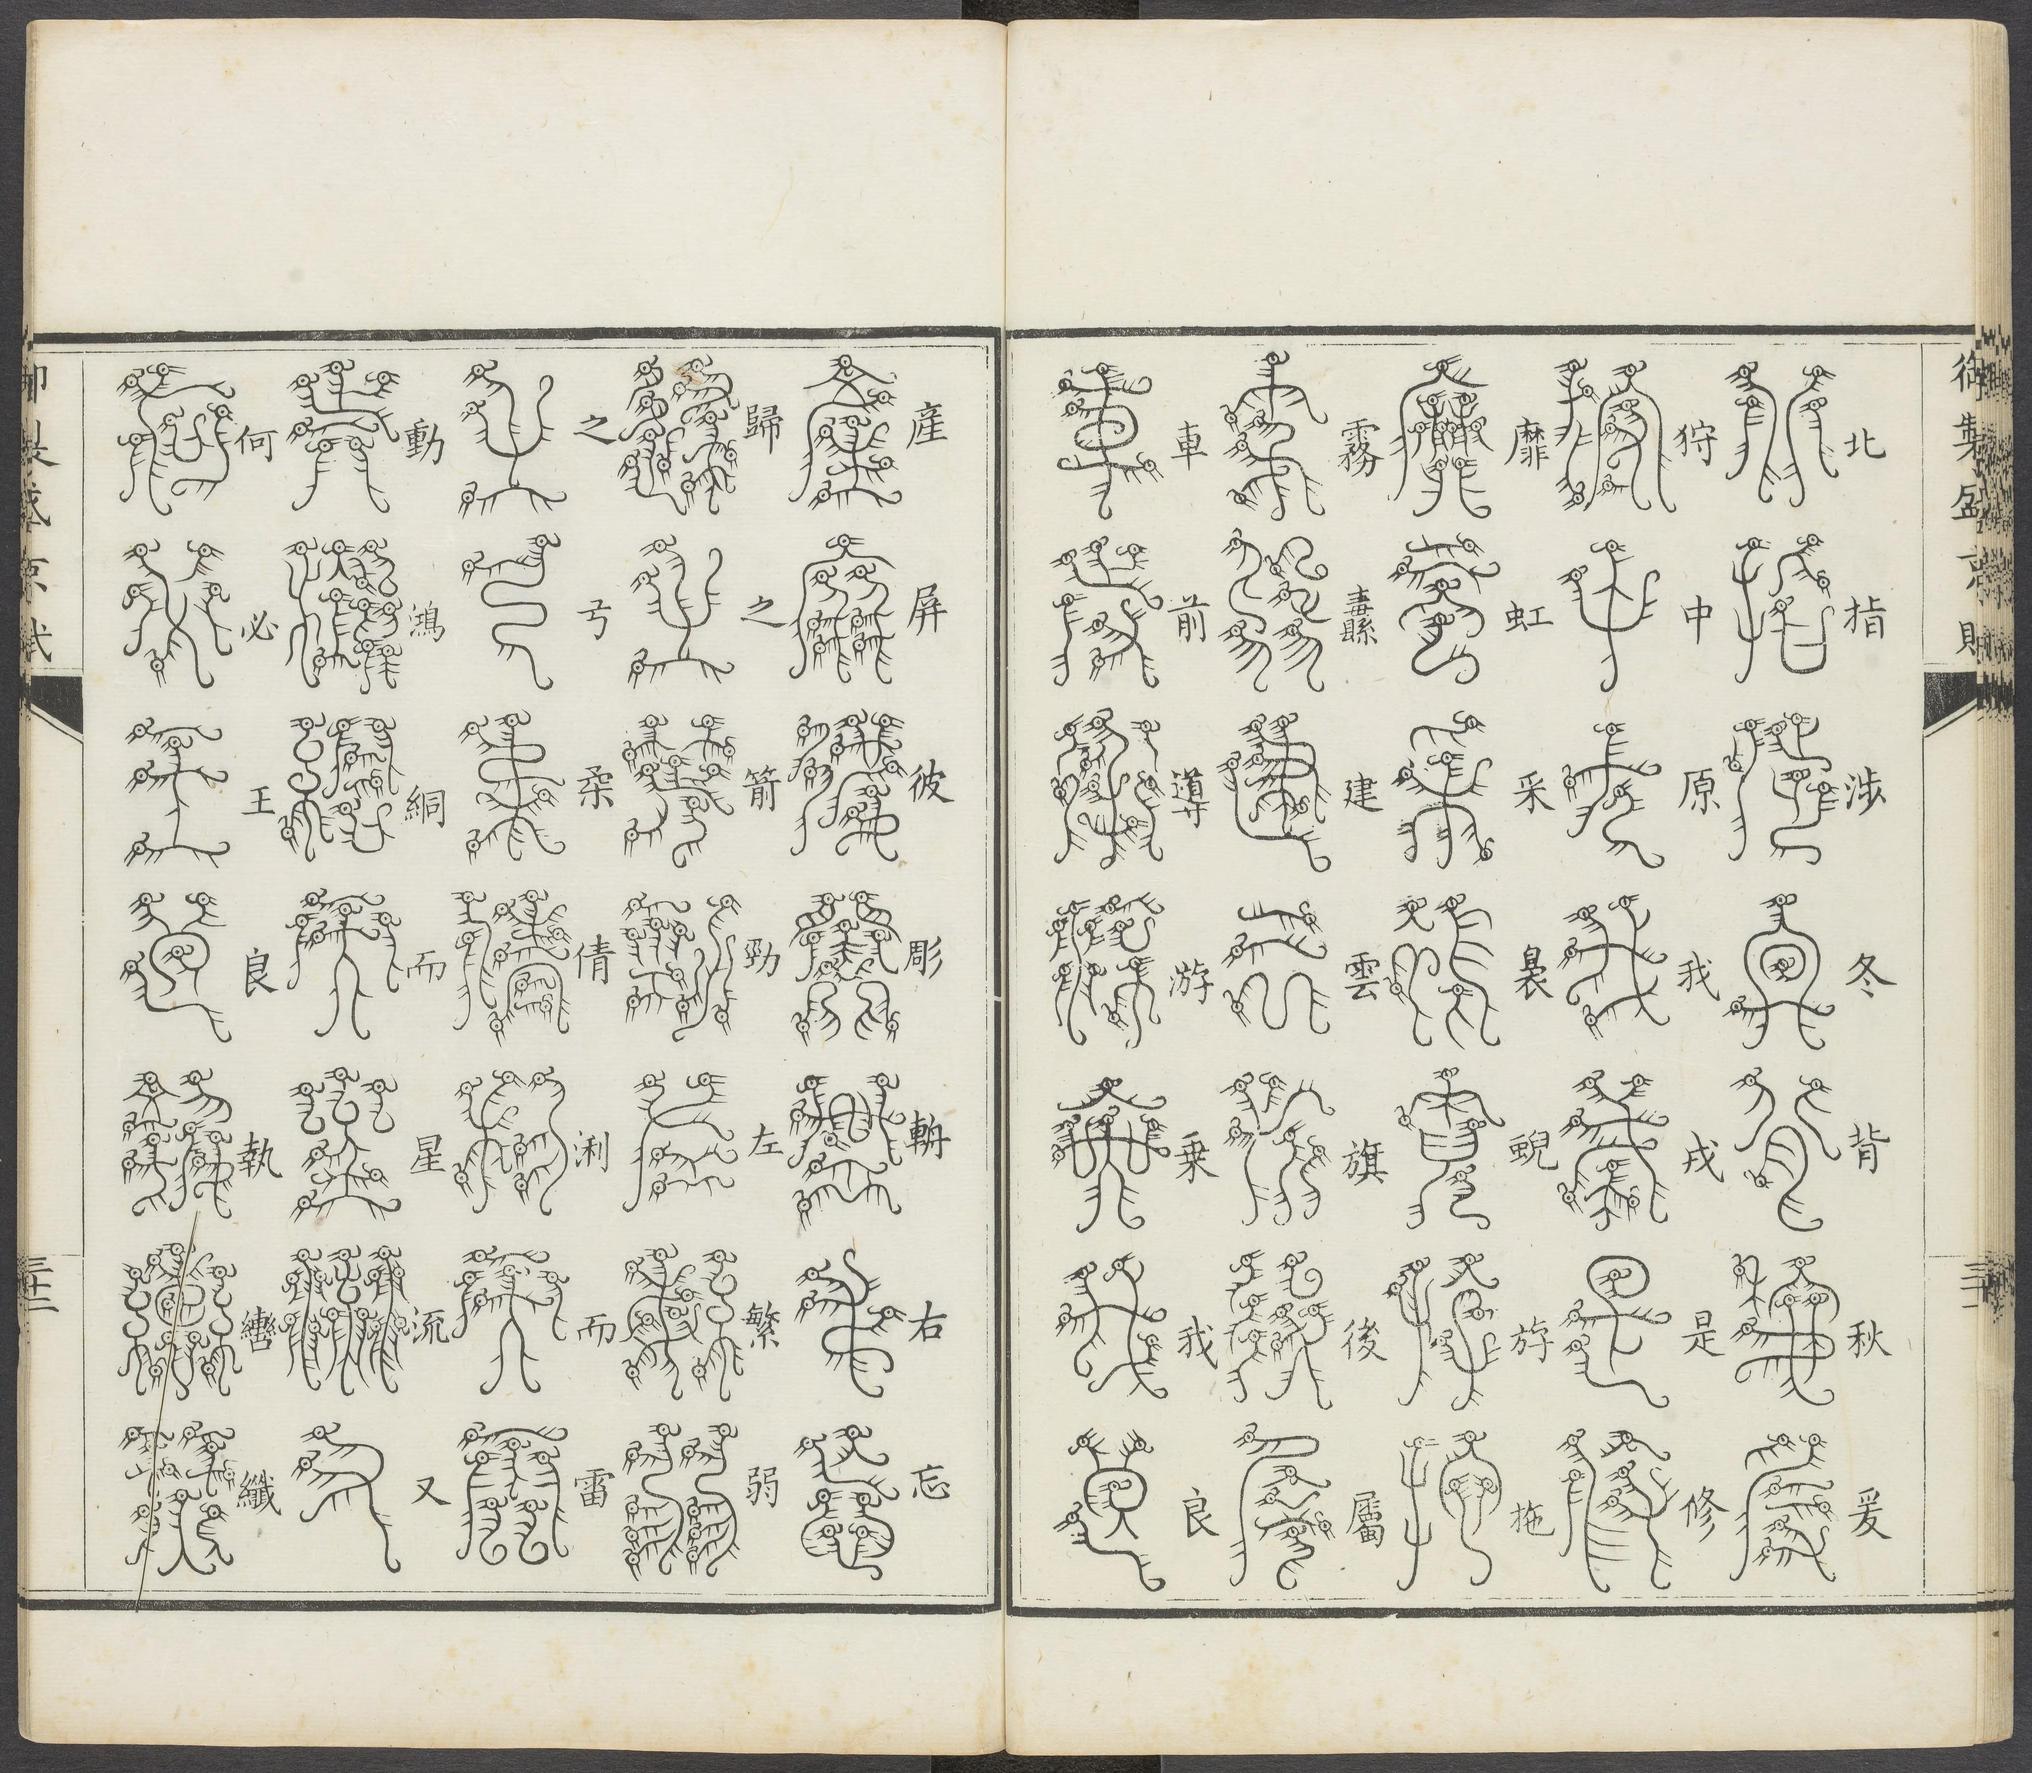 御製盛京賦
三十一
北指涉冬背秋爰
狩中原我戎是修
靡虹采裊蜺旍拖
霧纛建雲旗後屬
車前導游乘我良
產屏彼彫軿右忘
歸之箭勁左繁弱
之弓柔倩浰而雷
動鴻絧而星流又
何必王良執轡纖
御製盛京賦
三十二